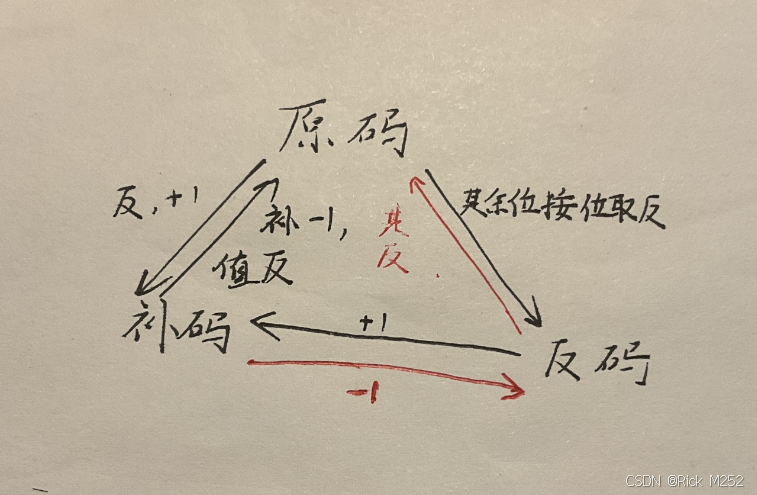 原码
反,+1
其余位按位取反
补-1,
值反
其
反
补码
+1
反码
-1
CSDN @Rick M252